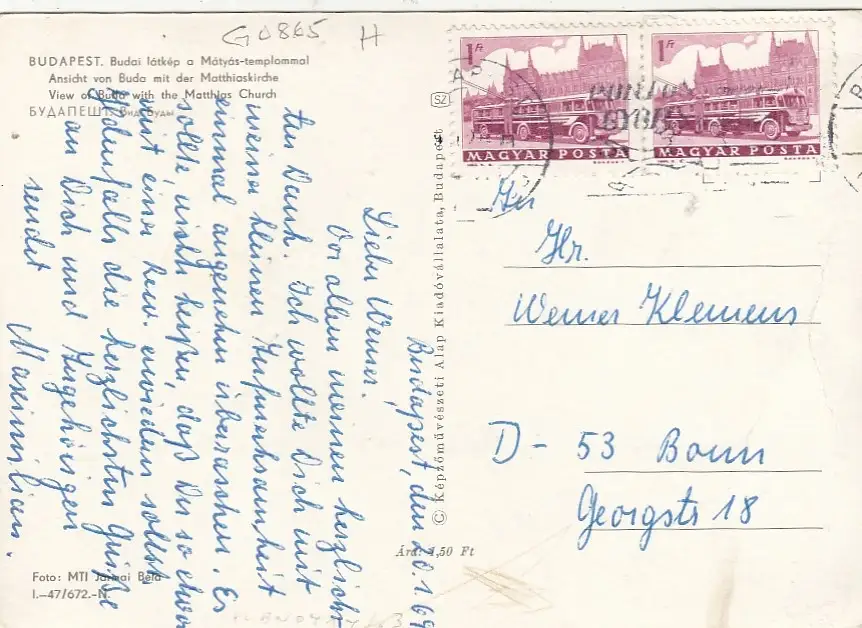 G0865 H
BUDAPEST. Budai látkép a Mátyás-templommal
Ansicht von Buda mit der Matthiaskirche
View of Buda with the Matthias Church
БУДАПЕШТ. Вид Буды
Budapest, den 20.1.69
Lieber Werner!
Vor allem meinen herzlich-
sten Dank. Ich wollte Dich mit
meiner kleinen Aufmerksamkeit
einmal angenehm überraschen. Es
sollte nicht heißen, daß Du so etwas
mit einer bzw. erwiedern sollst
Jedenfalls die herzlichsten Grüße
an Dich und Angehörigen
sendet
Maximilian.
Foto: MTI Jármai Béla
I.—47/672.—N.
SZ
© Képzőművészeti Alap Kiadóvállalata, Budapest
Ára: 1,50 Ft
1 Ft
MAGYAR POSTA
1 Ft
MAGYAR POSTA
An
Hr.
Werner Klemens
D - 53 Bonn
Georgstr 18